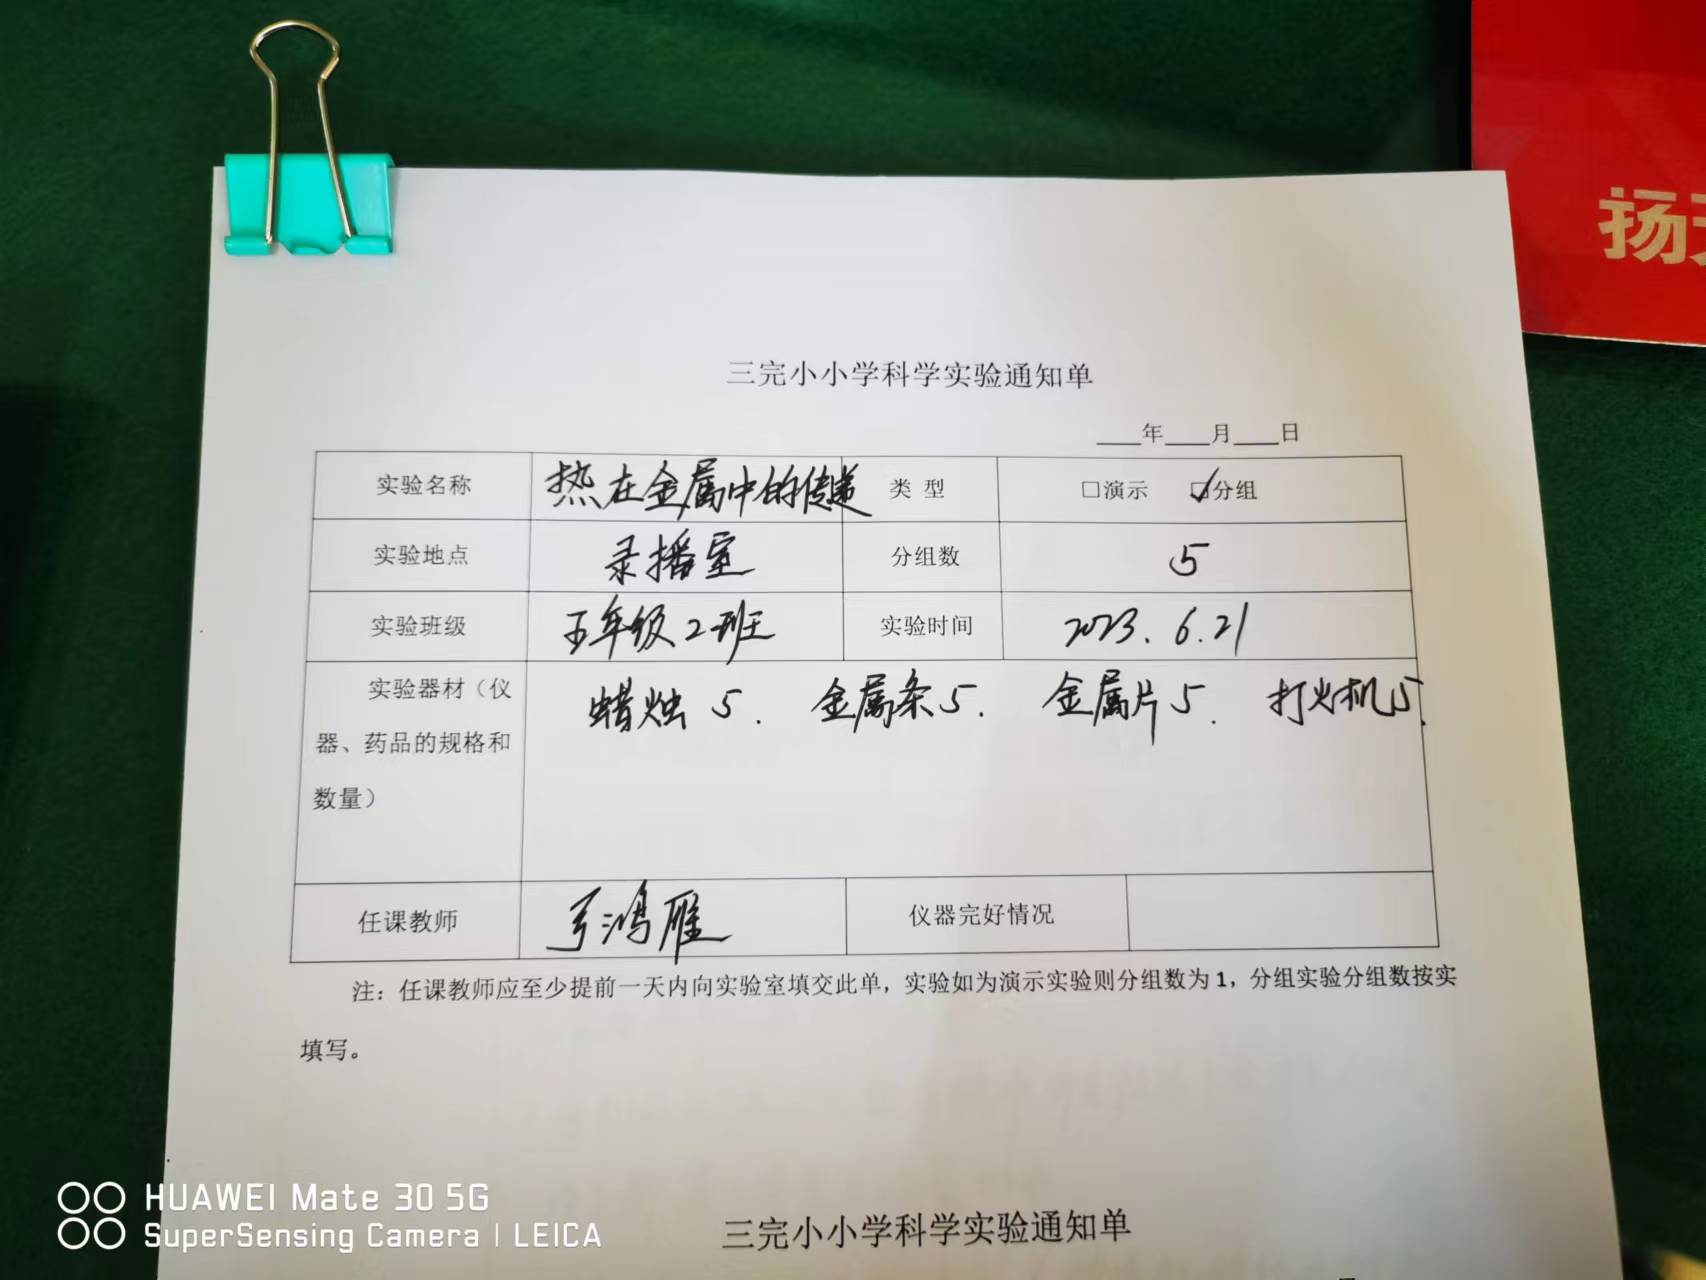 扬
三完小小学科学实验通知单
___年___月___日
实验名称 热在金属中的传递 类 型 □演示 ☑分组
实验地点 录播室 分组数 5
实验班级 五年级2班 实验时间 2023.6.21
实验器材（仪
器、药品的规格和
数量）
蜡烛 5. 金属条5. 金属片5. 打火机5.
任课教师 弓鸿雁 仪器完好情况
注：任课教师应至少提前一天内向实验室填交此单，实验如为演示实验则分组数为1，分组实验分组数按实
填写。
三完小小学科学实验通知单
HUAWEI Mate 30 5G
SuperSensing Camera | LEICA